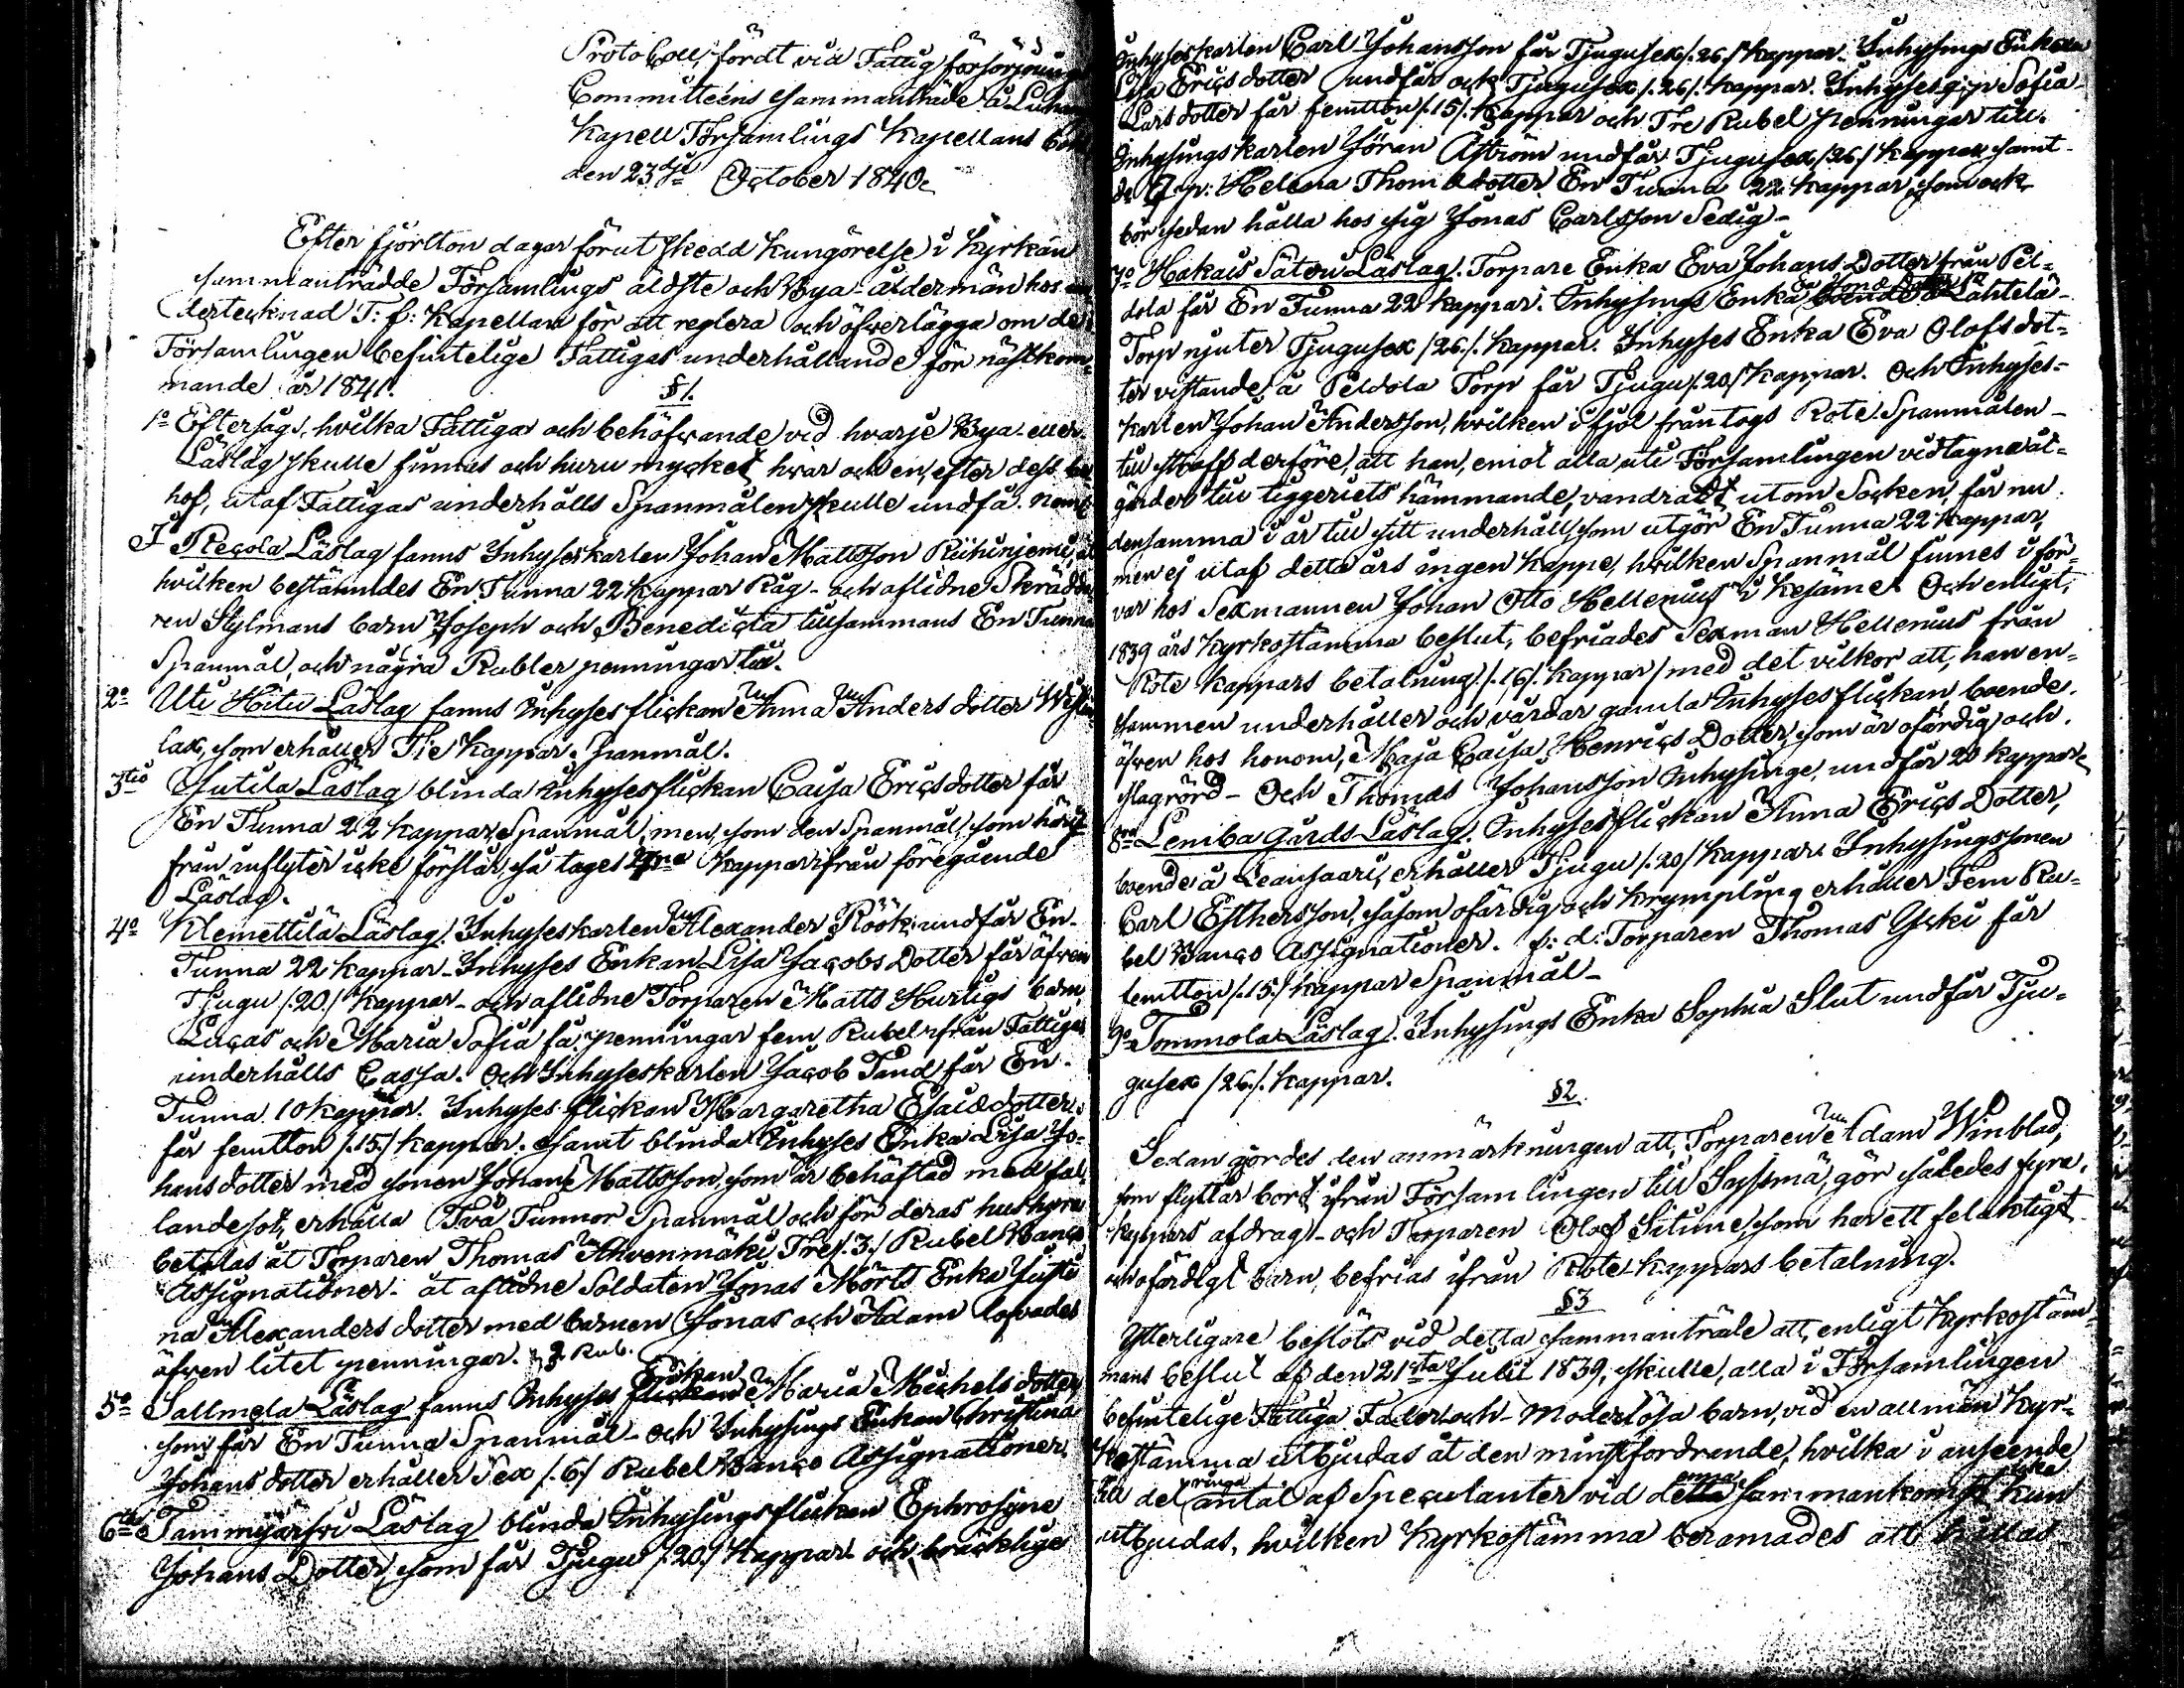 Protocoll, fördt vid Fattig försörjnings
Committeens sammanträde å Luhan
Kapell Församlings Kapellans Bol
den 23dje October 1840.
Efter fjortton dagar förut skedd Kungörelse i Kyrkan
sammanträdde Församlings äldste och Bya-åldermän hos un
dertecknad T: f: Kapellan för att reglera och öfverlägga om de i
Församlingen befintelige Fattigas underhållande för nästkom-
mande år 1841.
§1.
1o Eftersågs, hvilka Fattiga och behöfvande vid hvarje Bya- eller
Läslag skulle finnas och huru mycket hvar och en, efter dess be
hof, utaf Fattigas underhålls Spanmålen skulle undfå. neml
I Recola Läslag fanns Inhyseskarlen Johan Mattsson Riihinjemi, åt
hvilken bestämdes En Tunna 22 Kappar Råg - och aflidne Skrädda
ren Stylmans barn Joseph och Benedicta tillsammans En Tunna
Spanmål, och några Rubler penningar till.
2o Uti Hitu Läslag fanns Inhyses flickan Anna Anders dotter
lax, som erhåller Tie Kappar Spanmål.
3tio Sutila Läslag blinda Inhysesflickan Caisa Ericsdotter får
En Tunna 22 kappar, Spanmål, men, som den Spanmål, som
från inflyter icke förslår, så tages kappar ifrån föregående
Läslag.
4o Klemettilä Läslag. Inhyseskarlen Alexander Röök undfår En
Tunna 22 kappar - Inhyses Enkan Lisa Jacobs Dotter får äfven
Tjugu /.20./ kappar - och aflidne Torparen Matts Hurtigs barn,
Lucas och Maria Sofia få penningar fem Rubel ifrån Fattigas
underhålls Cassa. Och Inhyseskarlen Jacob Tand får En
Tunna 10 kappar. Inhyses flickan Margaretha Esaiædotter
får femtton /.15./ kappar. samt blinda Inhyses Enka Lisa Jo-
hansdotter med sonen Johan Mattsson, som är behäftad med fal-
landesot, erhålla Två Tunnor Spanmål och för deras hushyra
betalas åt Torparen Thomas Ahvenmäki Tre /.3./ Rubel Banco
Assignationer. åt aflidne Soldaten Jonas Mörts Enka Justi
na Alexanders dotter med barnen Jonas och Adam lofvades
äfven litet penningar. 2 Rub.
5o Sallmela Läslag fanns Inhyses flickan Enkan Maria Michels dotter
som får En Tunna Spanmål - och Inhysings Enkan Christina
Johansdotter erhåller Sex /.6./ Rubel Banco Assignationer.
6te Tammijärfvi Läslag blinda Inhysingsflickan Ephrosyne
Johans Dotter, som får Tjugu /.20./ kappar och bräcklige
Inhyseskarlen Carl Johansson får Tjugusex /.26./ kappar. Inhysings Enkan
Lisa Ericsdotter undfår ock Tjugusex /.26./ kappar. Inhyses Sofia
Larsdotter får femtton /.15./ kappar och Tre Rubel penningar till.
Inhysingskarlen Jöran Åström undfår Tjugusex /.26./ kappar samt
Helena Thom dotter En Tunna 22 kappar, som ock
bör sedan hålla hos sig Jonas Carlsson Sedig -
7o Hakais Säteri Läslag. Torpare Enka Eva Johans Dotter från Pel-
dola får En Tunna 22 kappar. Inhysings Enka boende å Lahtela
Torp njuter Tjugusex /26./ kappar. Inhyses Enka Eva Olofs dot-
ter vistande å Peldola Torp får Tjugu /.20/ kappar. Och Inhyses-
karlen Johan Andersson, hvilken i fjol fråntogs Rote Spanmålen
till straff derföre, att han, emot alla uti Församlingen vidtagna åt-
gärder till tiggeriets hämmande, vandradt utom Socken, får nu
densamma i år till sitt underhåll, som utgör En Tunna 22 kappar,
men ej utaf detta års ingen kappe, hvilken Spanmål finnes i för-
var hos Sexmannen Johan Otto Hellenius i Kejämet. Och enligt
1839 års Kyrkostämma beslut, befriades Sexman Hellenius från
Rote kappars betalning /.16/. kappar/ med det vilkor att, han en-
sammen underhåller och vårdar gamla Inhysesflickan, boende
äfven hos honom, Maja Caisa Henrics Dotter, som är ofärdig och
slagrörd - Och Thomas Johansson Inhysinge, undfår 20 kappar
8va Leniba Gårds Läslag. Inhysesflickan Anna Erics Dotter,
boende å Leansaari, erhåller Tjugu /.20/ kappar. Inhysingssonen
Carl Esthersson, såsom ofärdig och krympling erhåller Fem Ru-
bel Banco Assignationer. f: d: Torparen Thomas Ycki får
femtton /.15./ kappar Spanmål -
9o Tommola Läslag. Inhysings Enka Sophia Slut undfår Tju-
gusex /26./. kappar.
§2.
Sedan gjordes den anmärkningen att, Torparen Adam Winblad,
som flyttar bort ifrån Församlingen till Sysmä, gör således fyra
kappars afdrag - och Torparen Olof Situne, som har ett felaktigt
och ofärdigt barn, befrias ifrån Rote-kappars betalning.
§3
Ytterligare beslöts vid detta sammanträde att, enligt Kyrkostäm-
mans beslut af den 21sta Julii 1839, skulle, alla i Församlingen
befintelige Fattiga Fader- och Moderlösa barn, vid en allmän Kyr-
kostämma utbjudas åt den minstfordrande, hvilka i anseende
till det ringa antal af Speculanter vid denna Sammankomst icke kun
utbjudas, hvilken Kyrkostämma beramades att hållas